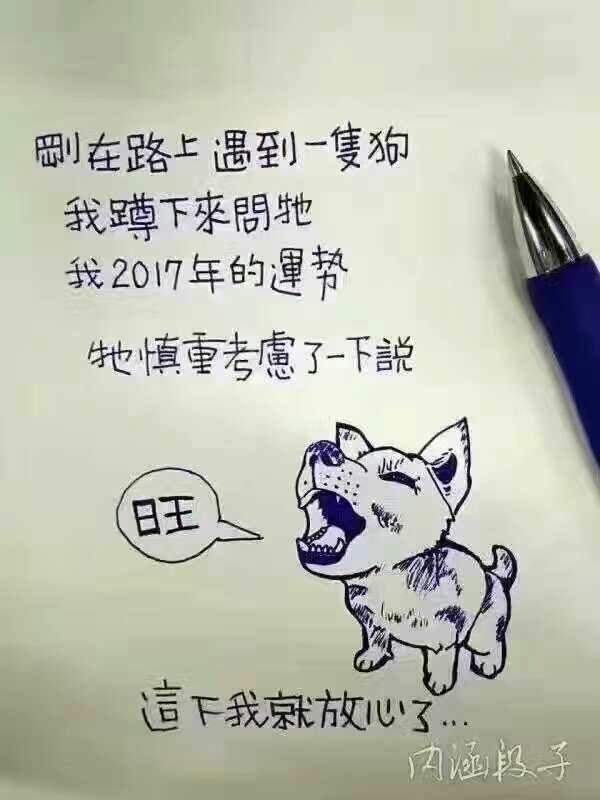 剛在路上遇到一隻狗
我蹲下來問牠
我2017年的運勢
牠慎重考慮了一下説
旺
這下我就放心了...
内涵段子